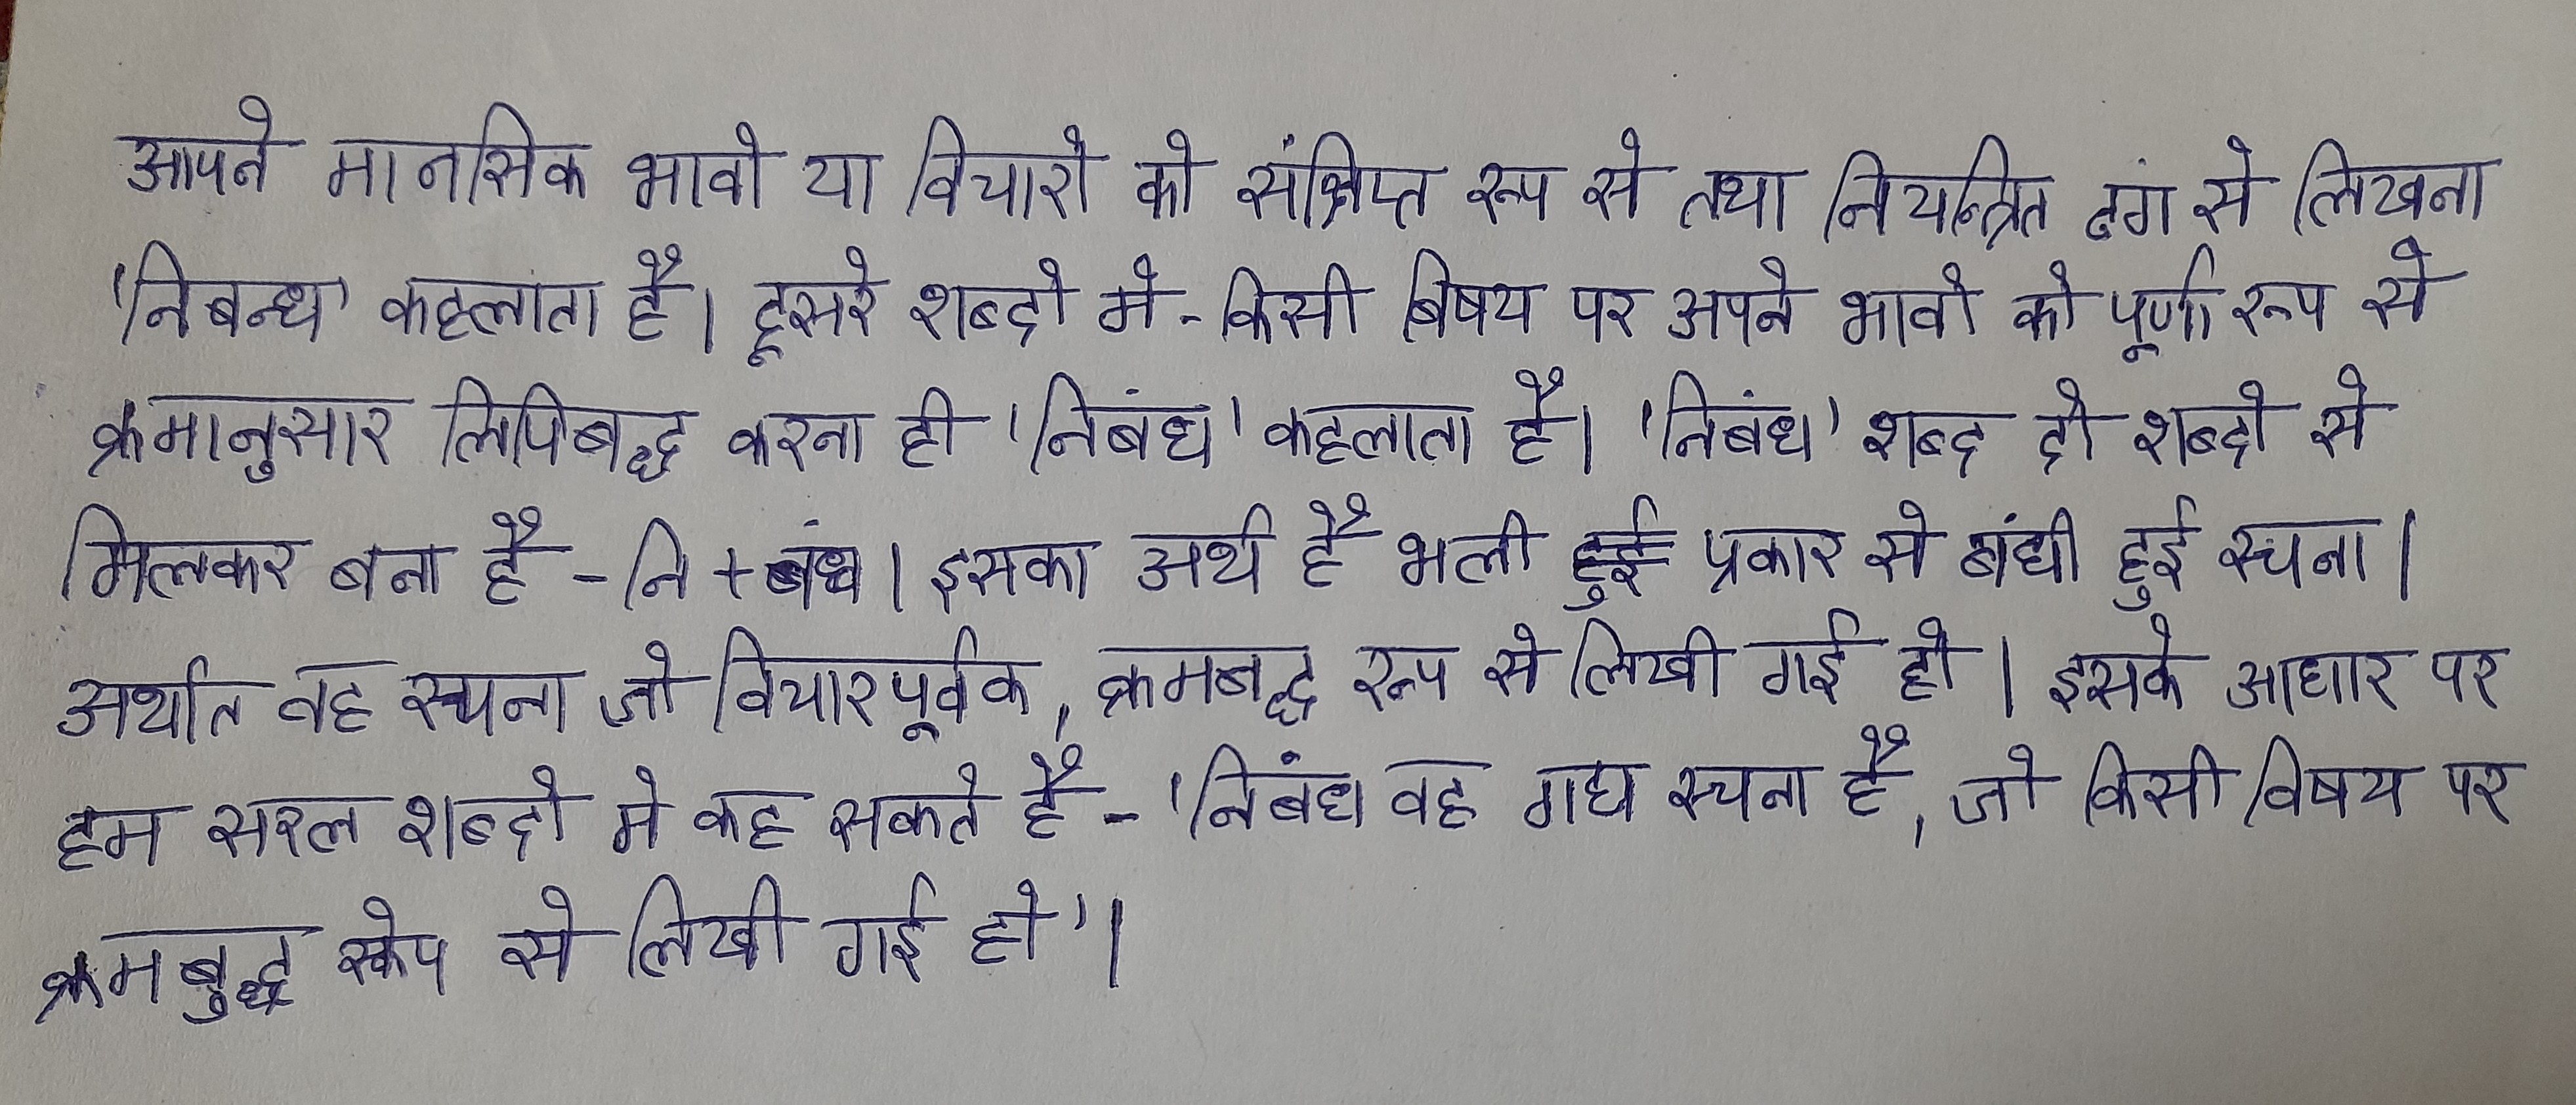 आपने मानसिक भावो या विचारो को संक्षिप्त रूप से तथा नियन्त्रित ढंग से लिखना
'निबन्ध' कहलाता है। दूसरे शब्दो मे - किसी विषय पर अपने भावो को पूर्ण रूप से
क्रमानुसार लिपिबद्ध करना ही 'निबंध' कहलाता है। 'निबंध' शब्द दो शब्दो से
मिलकर बना है - नि + बंध। इसका अर्थ है भली हुई प्रकार से बंधी हुई रचना।
अर्थात वह रचना जो विचारपूर्वक, क्रमबद्ध रूप से लिखी गई हो। इसके आधार पर
हम सरल शब्दो मे कह सकते है - 'निबंध वह गद्य रचना है, जो किसी विषय पर
क्रमबुद्ध रूप से लिखी गई हो'।